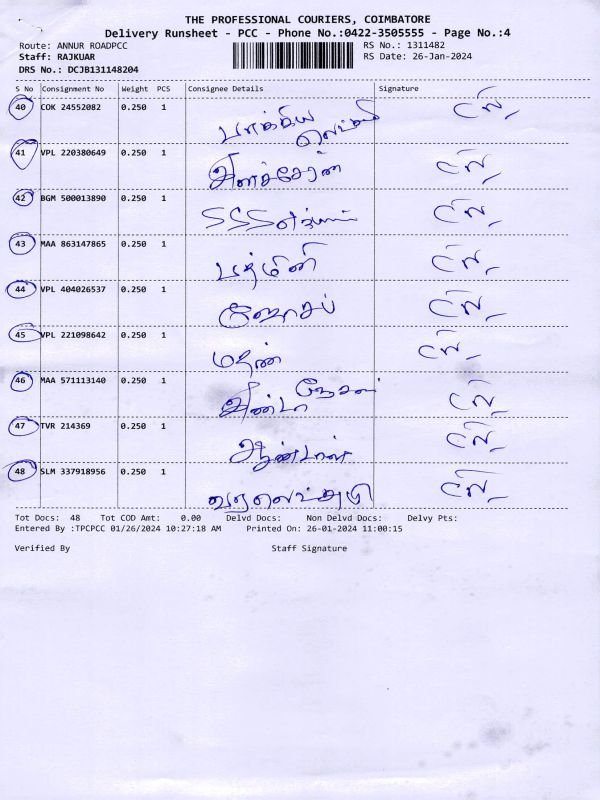 THE PROFESSIONAL COURIERS, COIMBATORE
Delivery Runsheet - PCC - Phone No.:0422-3505555 - Page No.:4
Route: ANNUR ROADPCC RS No.: 1311482
Staff: RAJKUAR RS Date: 26-Jan-2024
DRS No.: DCJB131148204
S No Consignment No Weight PCS Consignee Details Signature
40 COK 24552082 0.250 1 பாக்கிய
லெட்சுமி
41 VPL 220380649 0.250 1
42 BGM 500013890 0.250 1 SSS
43 MAA 863147865 0.250 1 பத்மினி
44 VPL 404026537 0.250 1 ஜோசப்
45 VPL 221098642 0.250 1 மதன்
46 MAA 571113140 0.250 1
47 TVR 214369 0.250 1 ஆண்டாள்
48 SLM 337918956 0.250 1 வரலெட்சுமி
Tot Docs: 48 Tot COD Amt: 0.00 Delvd Docs: Non Delvd Docs: Delvy Pts:
Entered By :TPCPCC 01/26/2024 10:27:18 AM Printed On: 26-01-2024 11:00:15
Verified By Staff Signature